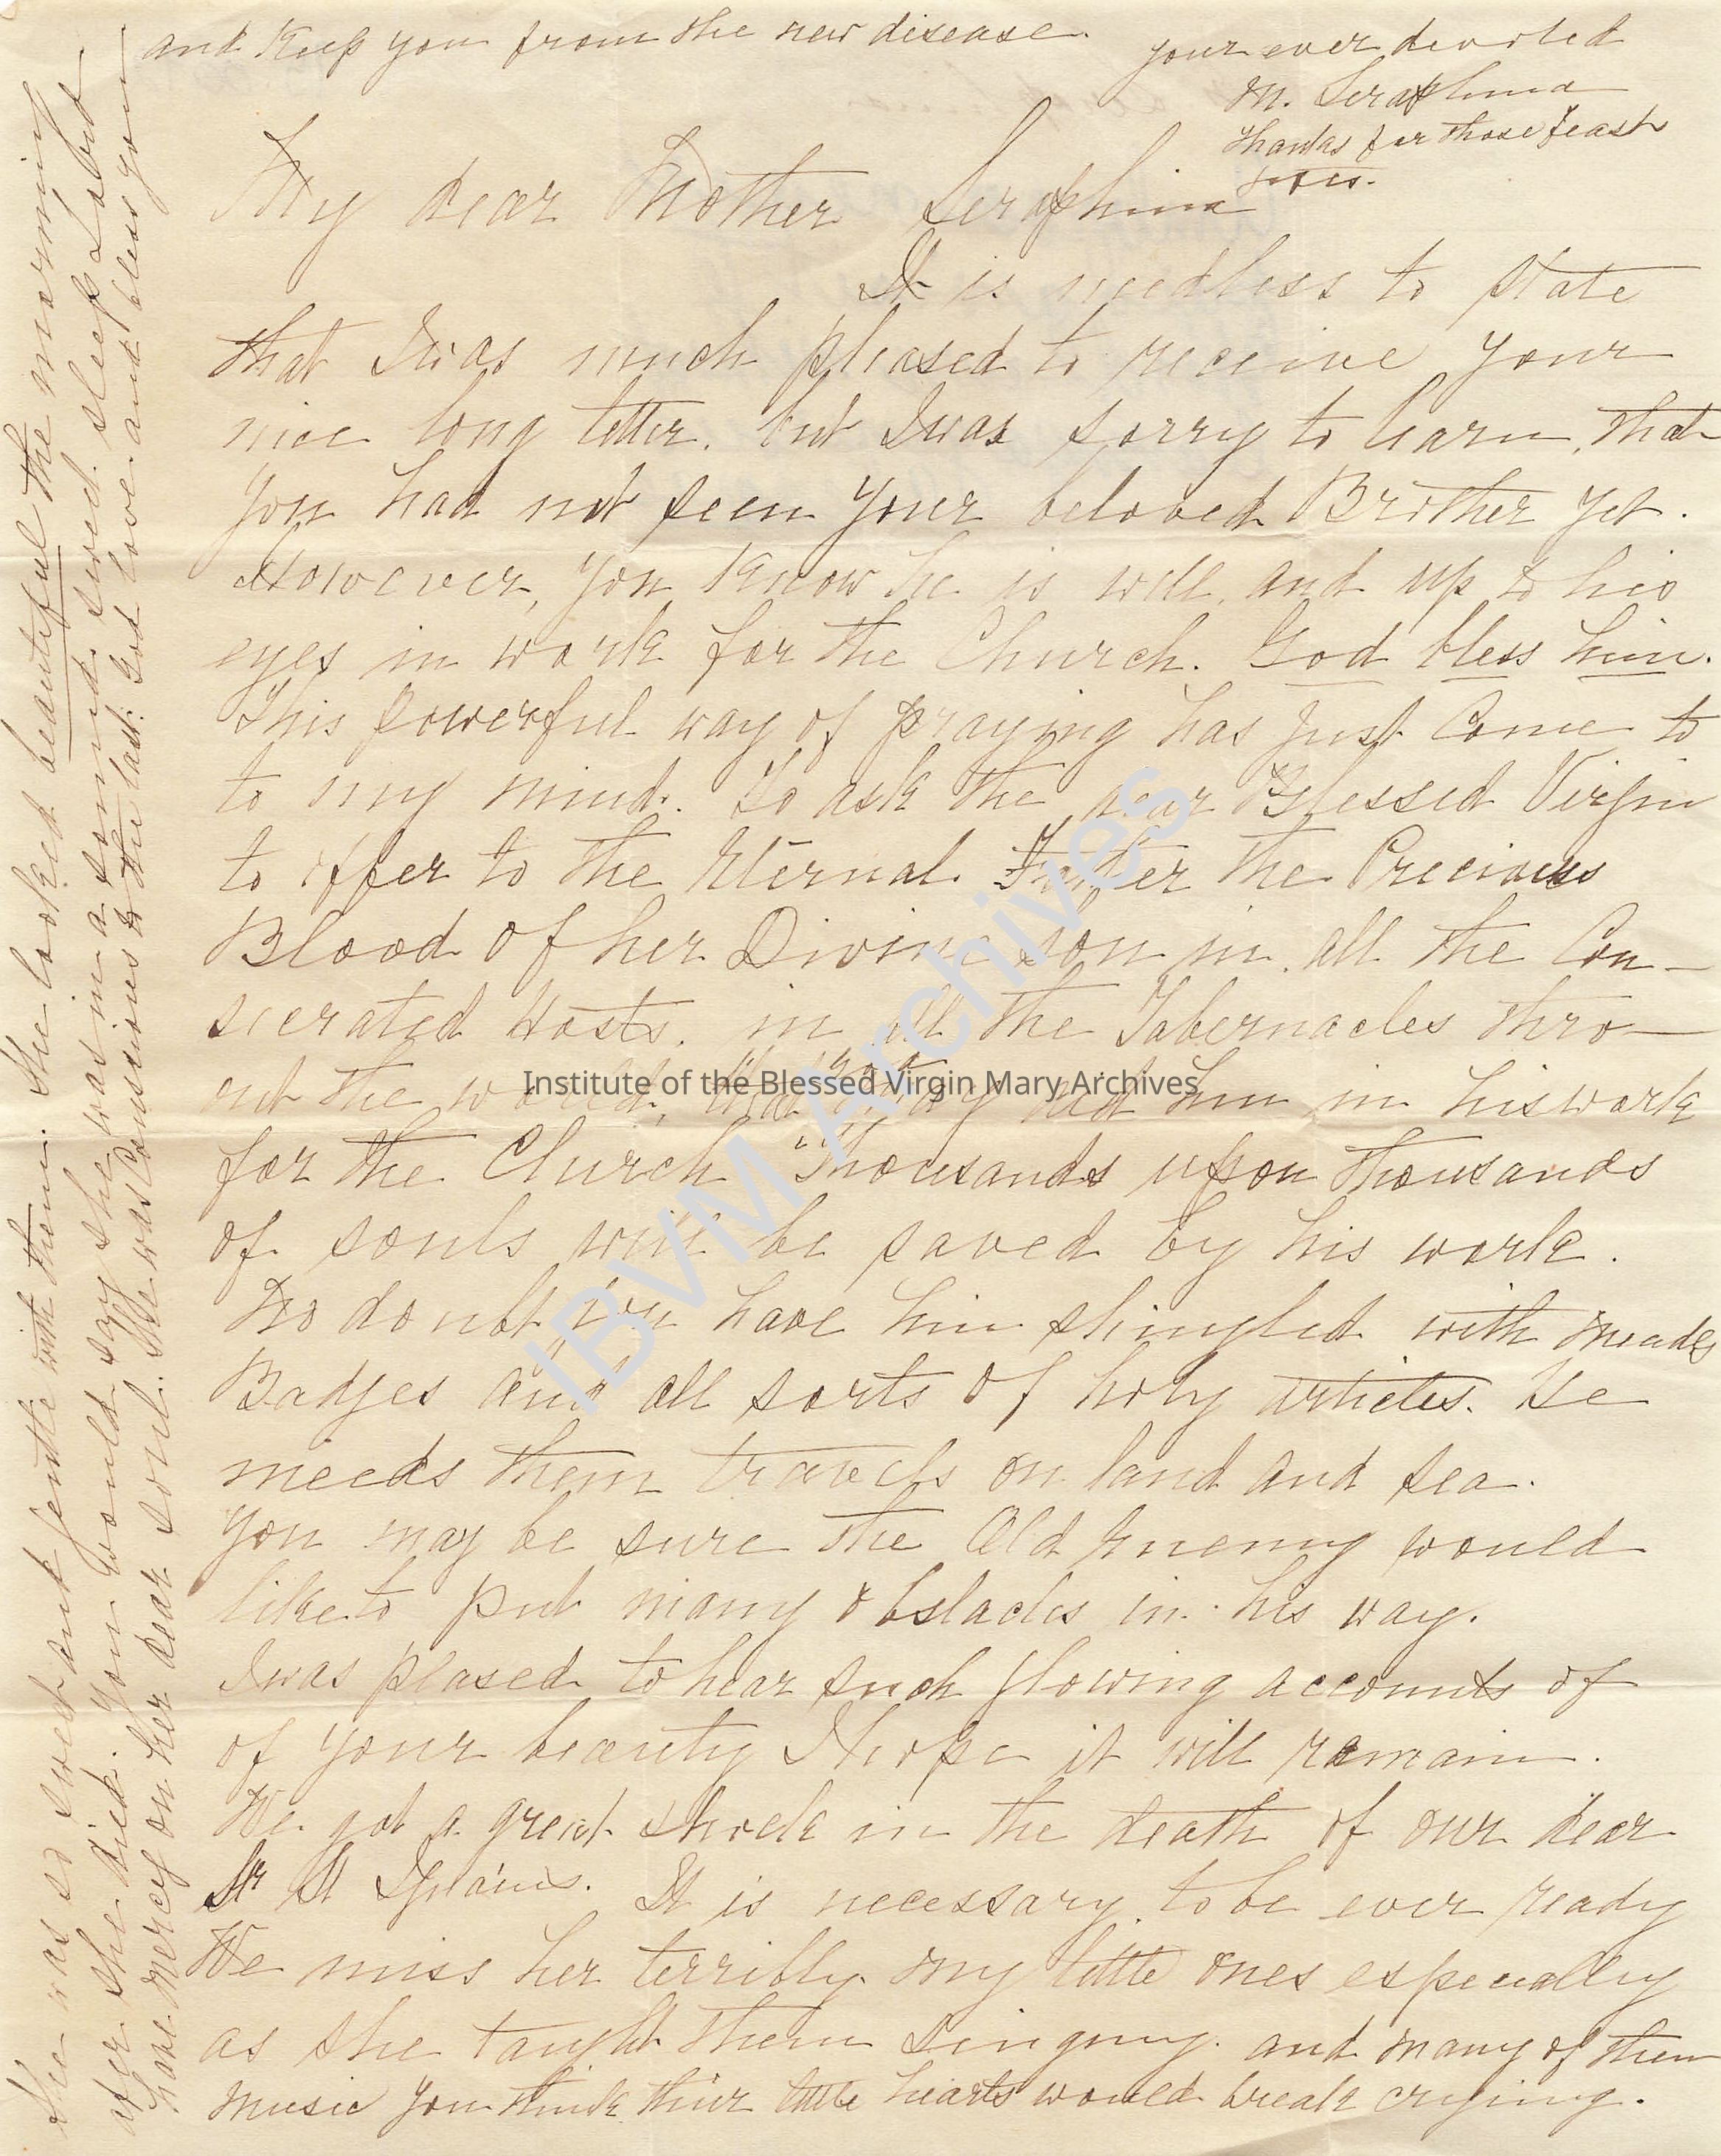 My dear Mother Seraphina
It is needless to state
that I was much pleased to receive your
nice long letter. but I was sorry to learn, that
you had not seen your beloved Brother yet.
However, you know he is well, and up to his
eyes in work for the Church. God bless him.
This powerful way of praying has just come to
to my mind. To ask the dear Blessed Virgin
to offer to the Eternal Father the Precious
Blood of her Divine Son in all the Con-
secrated Hosts. in all the Tabernacles thro-
out the world, that may aid him in his work
for the Church "Thousands upon Thousands
of souls will be saved by his work.
No doubt you have him shingled with meads
Badges and all sorts of holy articles. He
needs them travels on land and sea.
You may be sure the Old Enemy would
like to put many obstacles in his way.
I was plased to hear such glowing accounts of
of your beauty I hope it will remain.
We got a great shock in the death of our dear
Sr St Ignatius. It is necessary to be ever ready
We miss her terribly my little ones especially
as she taught them singing. and many of them
music you think their little hearts would break crying.
She was so sweet and gentle with them. She looked beautiful the morning
after she died. You would say she was in a sound, sweet sleep. Labud
have mercy on her dear soul. She was Conscious to the last. God love and bless you
and keep you from the new disease.
your ever devoted
M. Seraphina
Thanks for those feast
Institute of the Blessed Virgin Mary Archives
IBVM Archives